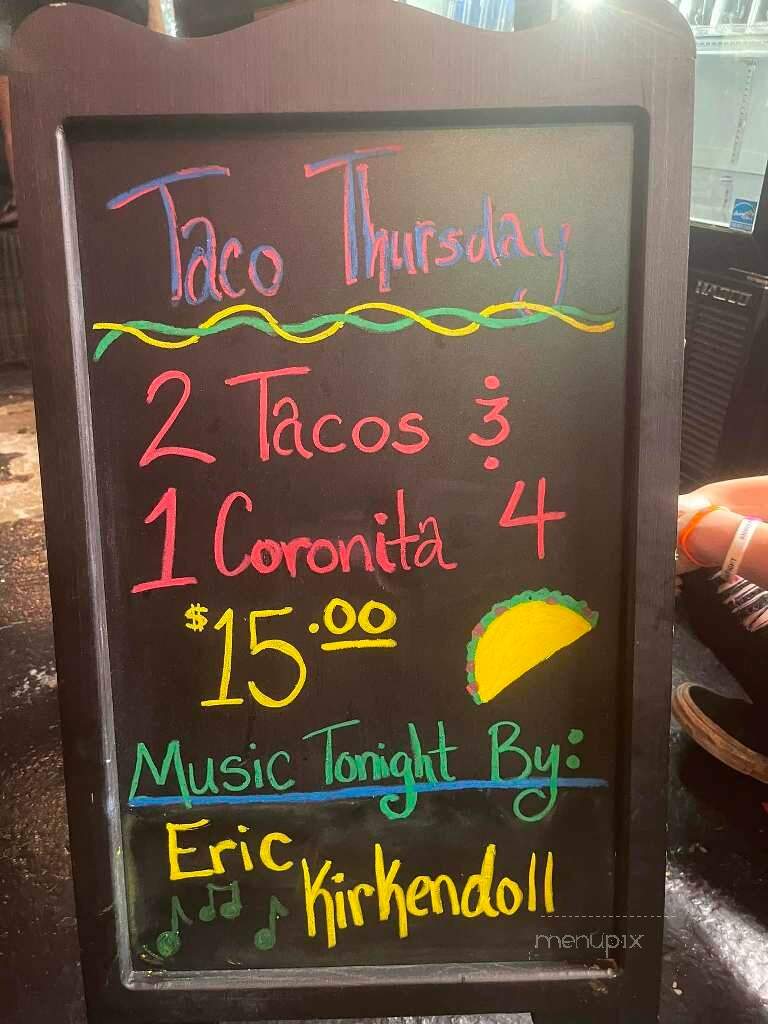 Taco Thursday
2 Tacos &
1 Coronita 4
$15.00
Music Tonight By:
Eric
Kirkendoll
menupix